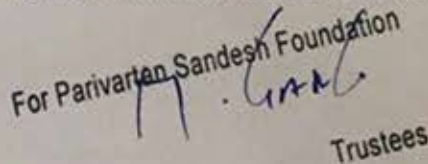 For Parivartan Sandesh Foundation
Trustees